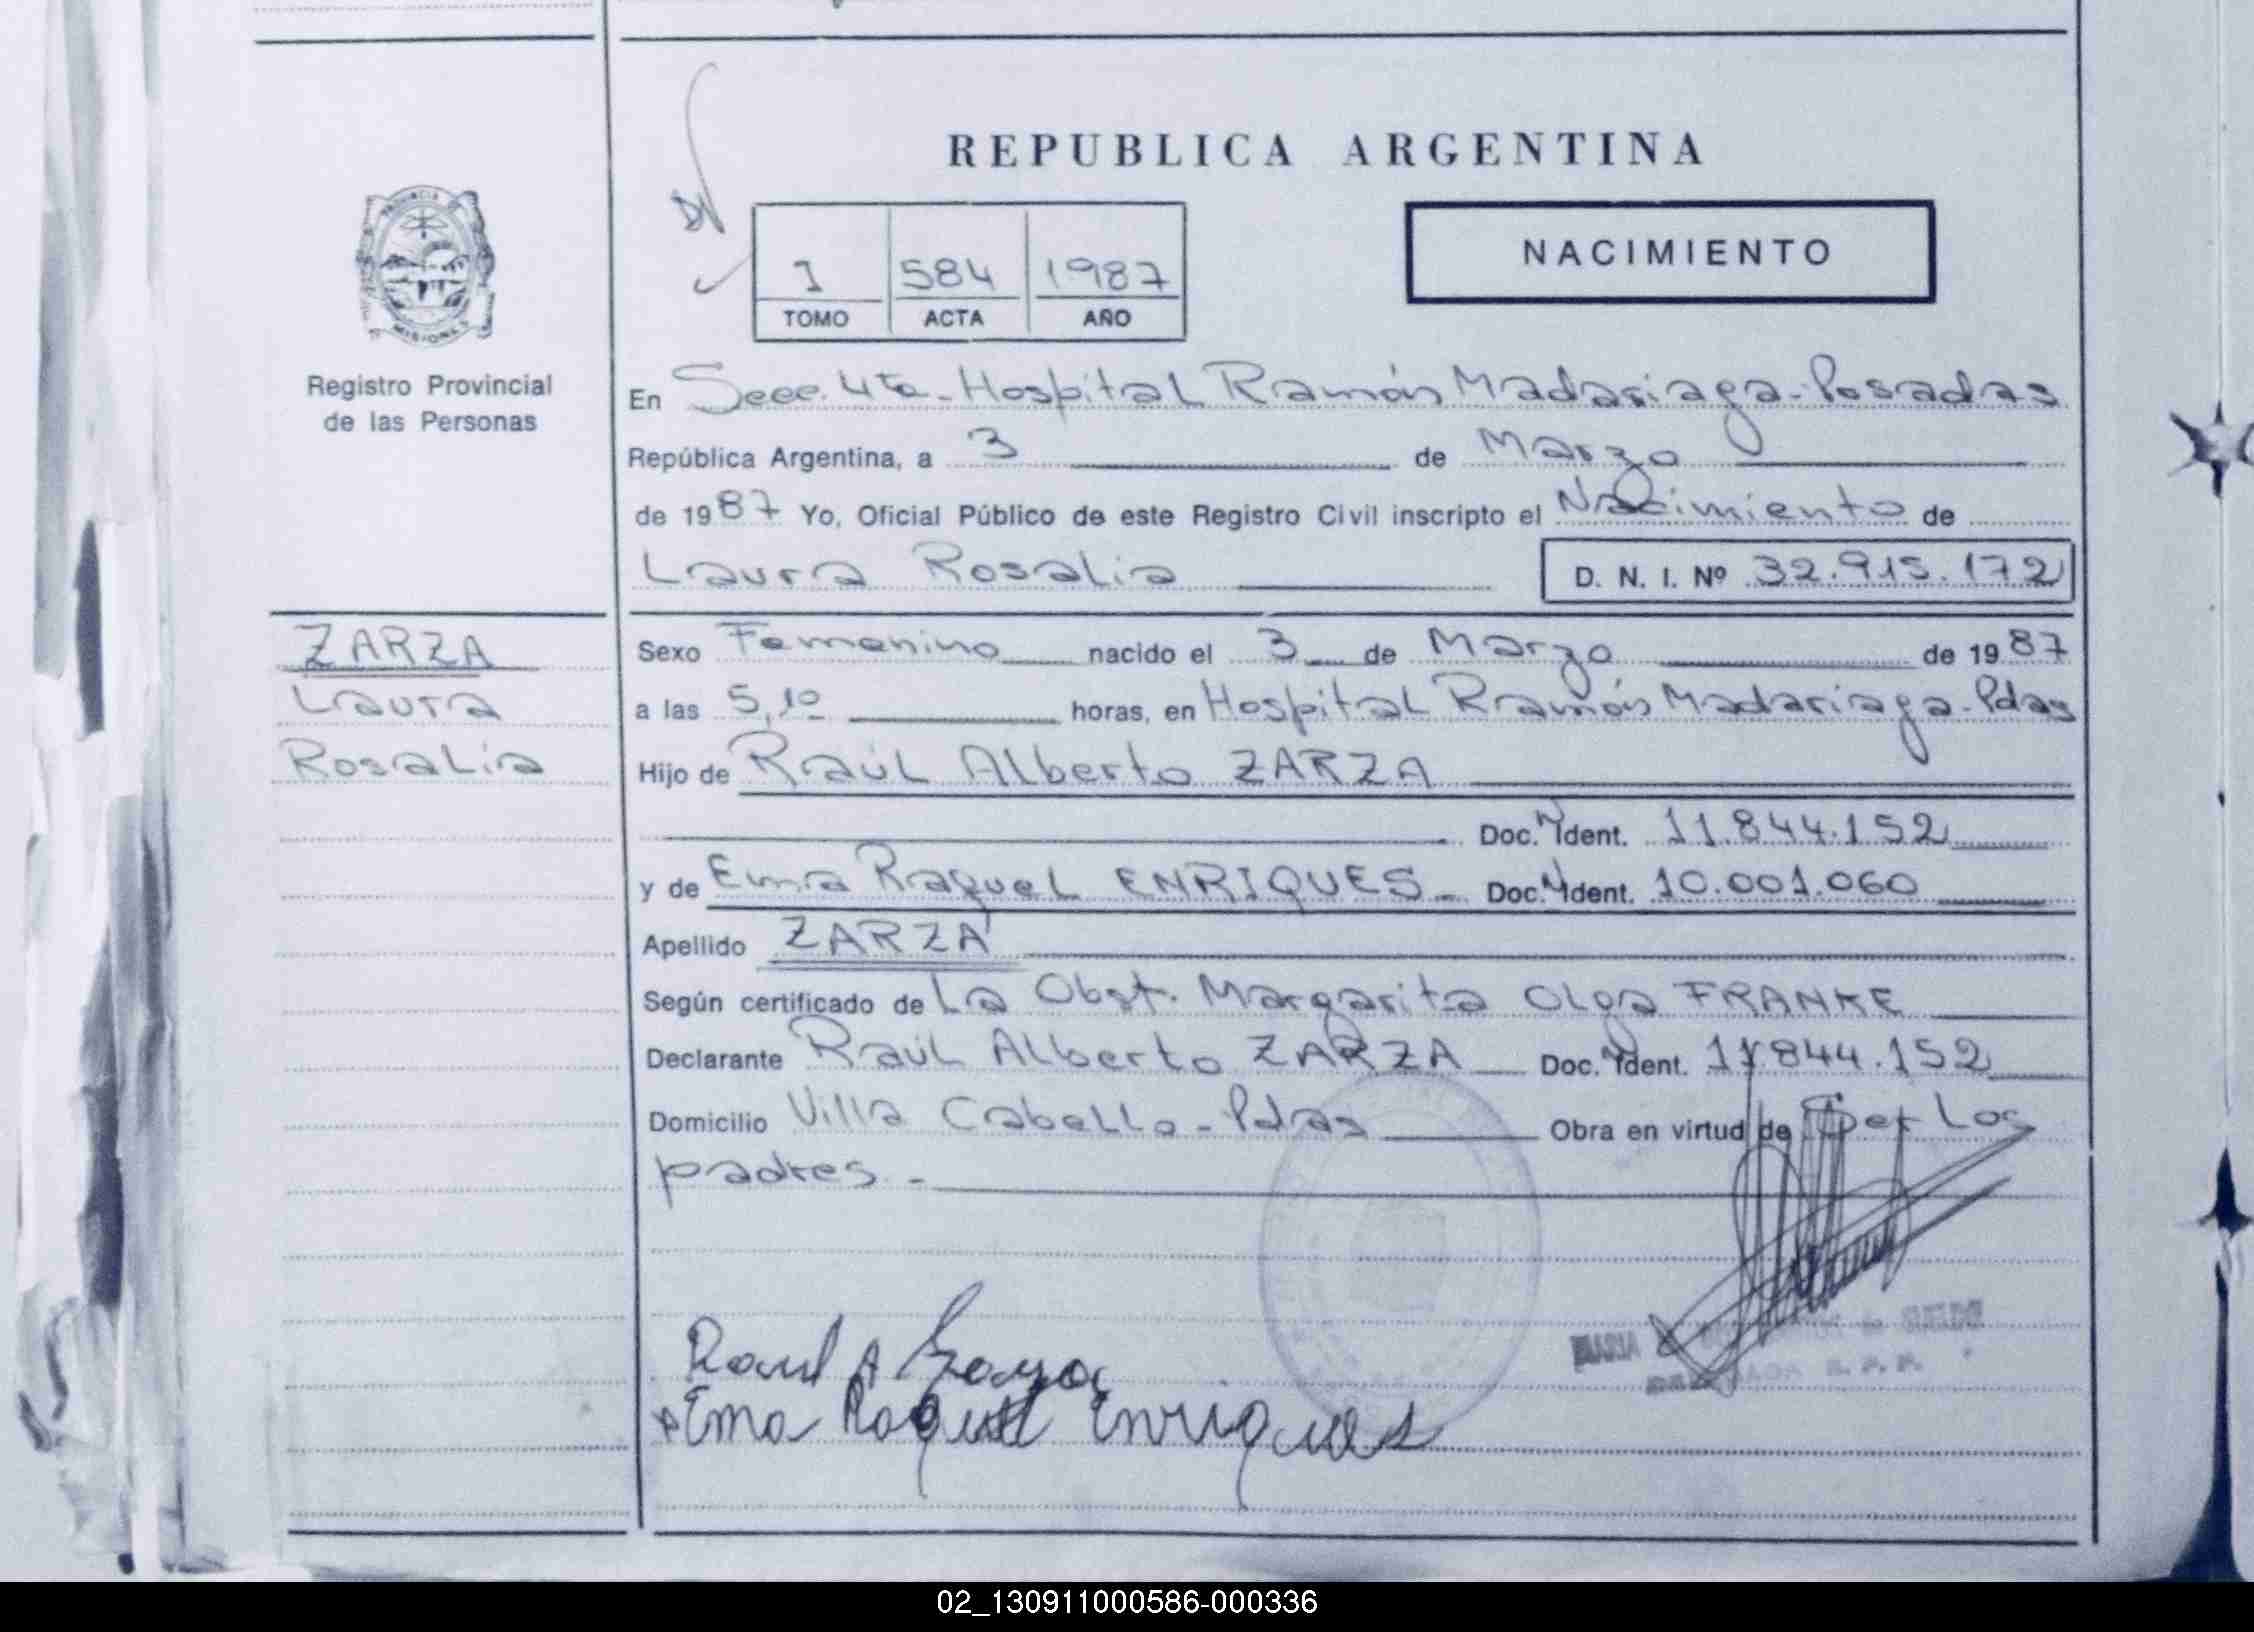 REPUBLICA ARGENTINA
DN
I 584 1987
TOMO ACTA AÑO
NACIMIENTO
PROVINCIA DE
MISIONES
Registro Provincial
de las Personas
En Secc. 4ta - Hospital Ramón Madariaga - Posadas
República Argentina, a 3 de Marzo
de 1987 Yo, Oficial Público de este Registro Civil inscripto el Nacimiento de
Laura Rosalia D. N. I. Nº 32.915.172
ZARZA
Laura
Rosalia
Sexo Femenino nacido el 3 de Marzo de 1987
a las 5,10 horas, en Hospital Ramón Madariaga - Pdas
Hijo de Raúl Alberto ZARZA
Doc. N Ident. 11.844.152
y de Ema Raquel ENRIQUES - Doc. N Ident. 10.001.060
Apellido ZARZA
Según certificado de La Obst. Margarita Olga FRANKE
Declarante Raúl Alberto ZARZA Doc. N Ident. 11.844.152
Domicilio Villa Cabello - Pdas Obra en virtud de Ser Los
padres. -
Raul A Zarza
Ema Raquel Enriques
MARIA
02_130911000586-000336